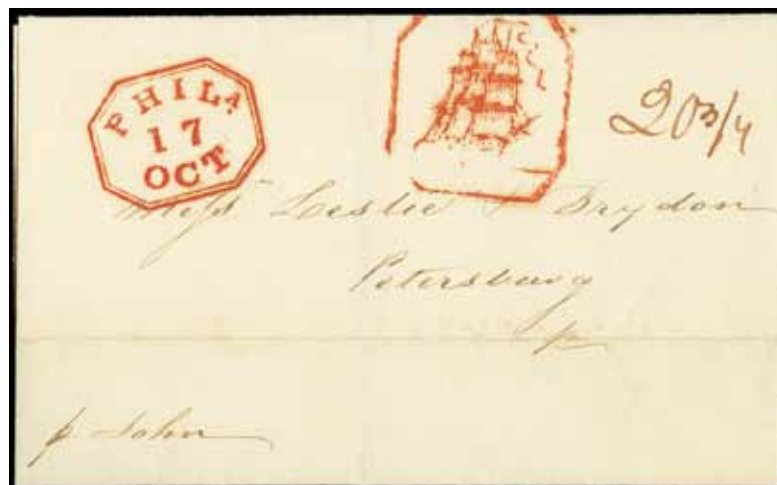 PHILA
17
OCT
20 3/4
Mess Leslie & Brydon
Petersburg
p John